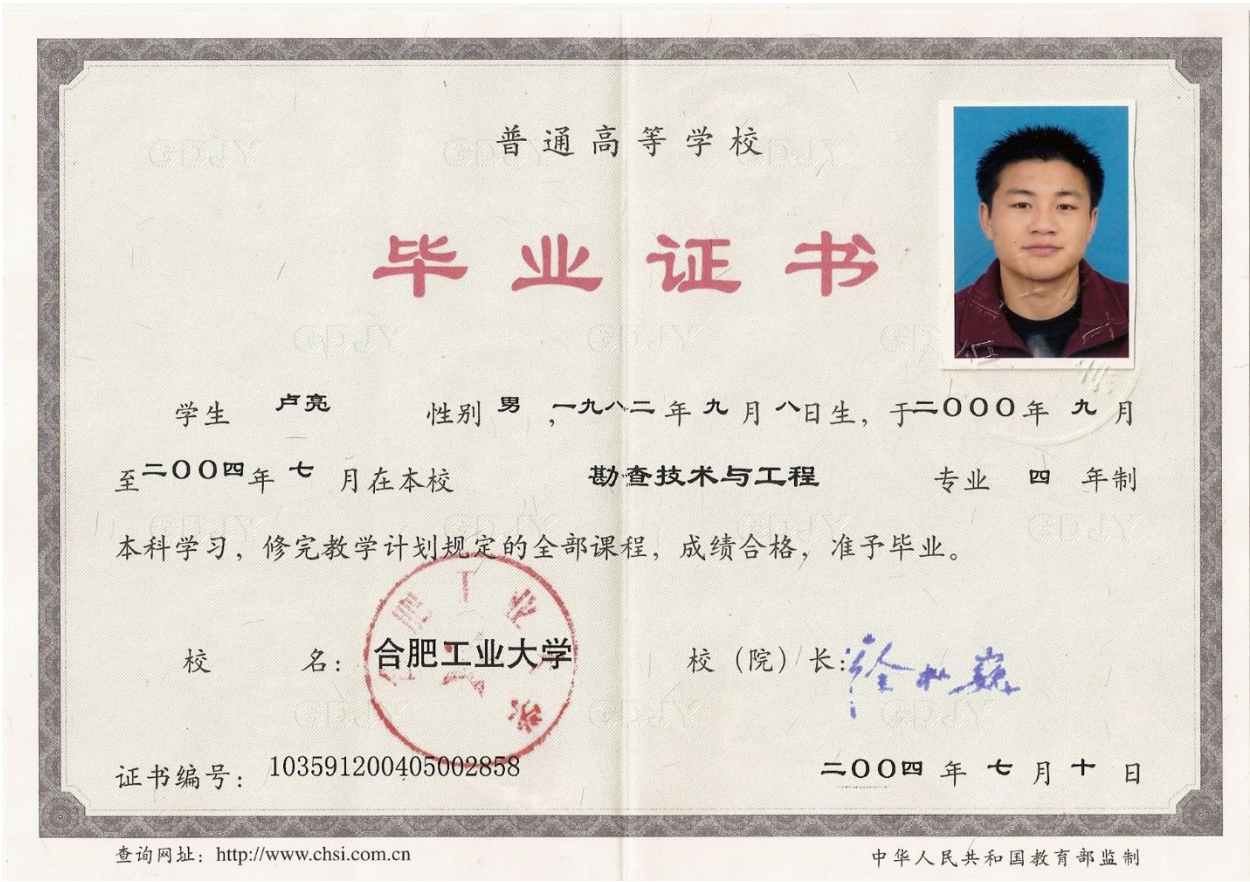 普通高等学校
毕业证书
学生 卢亮 性别 男 ,一九八二 年 九 月 八日生，于二〇〇〇年 九 月
至二〇〇四年 七 月在本校 勘查技术与工程 专业 四 年制
本科学习，修完教学计划规定的全部课程，成绩合格，准予毕业。
校 名：合肥工业大学 校（院）长：
证书编号：103591200405002858 二〇〇四 年 七 月 十 日
查询网址：http://www.chsi.com.cn 中华人民共和国教育部监制